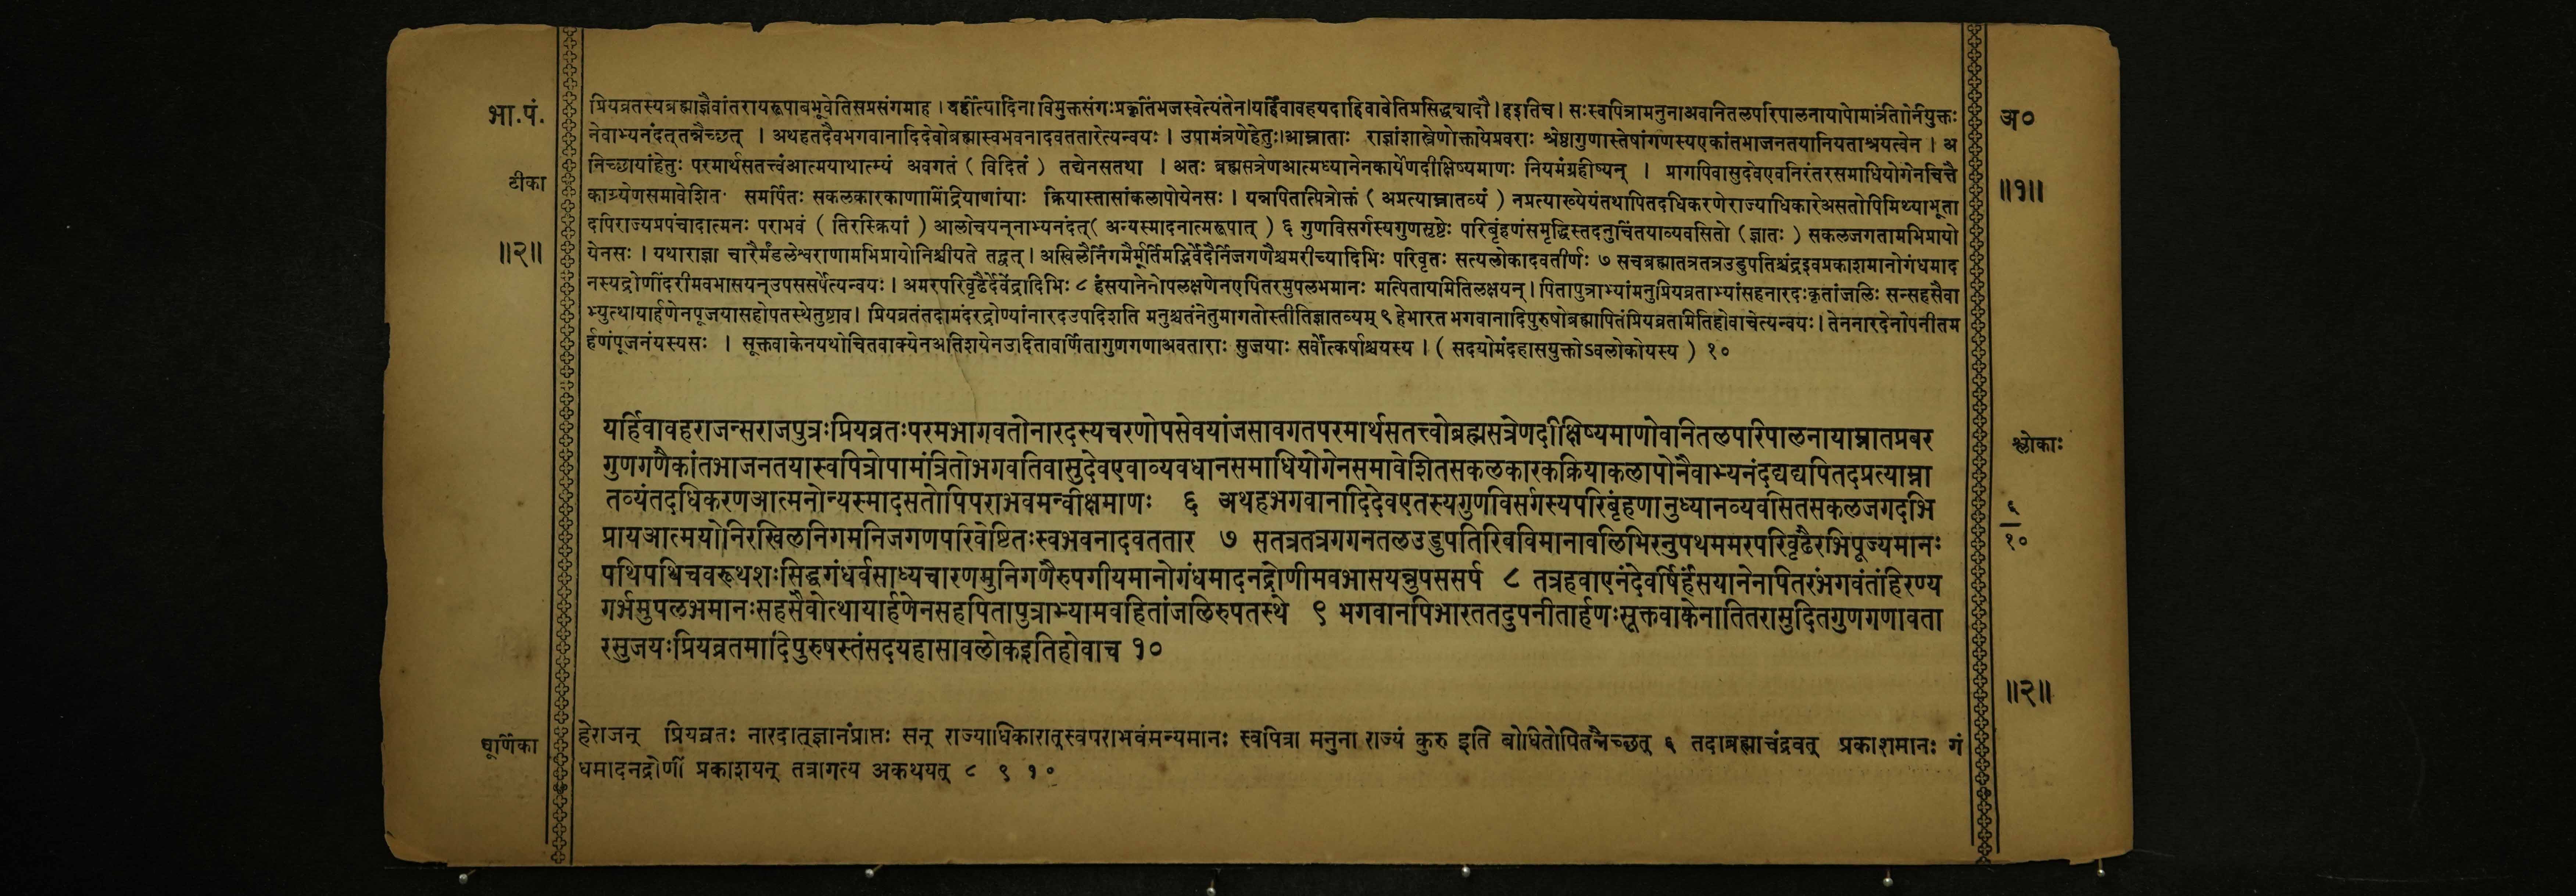 भा.पं.
टीका
॥२॥
प्रियव्रतस्यब्रह्माज्ञैवांतरायरूपाबभूवेतिसप्रसंगमाह । यर्हीत्यादिना विमुक्तसंगःप्रकृतिंभजस्वेत्यंतेन।यर्हिवावहयदाहिवावेतिप्रसिद्धचादौ।हइतिच। सःस्वपित्रामनुनाअवनितलपरिपालनायोपामंत्रितोनियुक्तः
नैवाभ्यनंदत्तन्नैच्छत् । अथहतदैवभगवानादिदेवोब्रह्मास्वभवनादवततारेत्यन्वयः । उपामंत्रणेहेतुः।आम्नाताः राज्ञांशास्त्रेणोक्तायेप्रवराः श्रेष्ठागुणास्तेषांगणस्यएकांतभाजनतयानियताश्रयत्वेन । अ
निच्छायांहेतुः परमार्थसतत्त्वंआत्मयाथात्म्यं अवगतं ( विदितं ) तच्चेनसतथा । अतः ब्रह्मसत्रेणआत्मध्यानेनकार्येणदीक्षिष्यमाणः नियमंग्रहीष्यन् । प्रागपिवासुदेवएवनिरंतरसमाधियोगेनचित्तै
काग्र्येणसमावेशित· समर्पितः सकलकारकाणामिंद्रियाणांयाः क्रियास्तासांकलापोयेनसः । यन्नपितत्पित्रोक्तं ( अप्रत्याम्नातव्यं ) नप्रत्याख्येयंतथापितदधिकरणेराज्याधिकारेअसतोपिमिथ्याभूता
दपिराज्यप्रपंचादात्मनः पराभवं ( तिरस्क्रियां ) आलोचयन्नाभ्यनंदत्( अन्यस्मादनात्मरूपात् ) ६ गुणविसर्गस्यगुणसृष्टेः परिबृंहणंसमृद्धिस्तदनुचिंतयाव्यवसितो (ज्ञातः ) सकलजगतामभिप्रायो
येनसः । यथाराज्ञा चारैर्मंडलेश्वराणामभिप्रायोनिश्चीयते तद्वत् । अखिलैर्निगमैर्मूर्तिमद्भिर्वेदैर्निजगणैश्चमरीच्यादिभिः परिवृतः सत्यलोकादवतीर्णः ७ सचब्रह्मातत्रतत्रउडुपतिश्चंद्रइवप्रकाशमानोगंधमाद
नस्यद्रोणींदरीमवभासयन्उपससर्पेत्यन्वयः । अमरपरिवृढैर्देवेंद्रादिभिः ८ हंसयानेनोपलक्षणेनएपितरमुपलभमानः मत्पितायमितिलक्षयन् । पितापुत्राभ्यांमनुप्रियव्रताभ्यांसहनारदःकृतांजलिः सन्सहसैवा
भ्युत्थायार्हणेनपूजयासहोपतस्थेतुष्टाव। प्रियव्रतंतदामंदरद्रोण्यांनारदउपदिशति मनुश्चतंनेतुमागतोस्तीतिज्ञातव्यम् ९ हेभारत भगवानादिपुरुषोब्रह्मापितंप्रियव्रतमितिहोवाचेत्यन्वयः। तेननारदेनोपनीतम
र्हणंपूजनंयस्यसः । सूक्तवाकेनयथोचितवाक्येनअतिशयेनउदितावर्णितागुणगणाअवताराः सुजयाः सर्वोत्कर्षाश्चयस्य । ( सदयोमंदहासयुक्तोऽवलोकोयस्य ) १०
यर्हिवावहराजन्सराजपुत्रःप्रियव्रतःपरमभागवतोनारदस्यचरणोपसेवयांजसावगतपरमार्थसतत्त्वोब्रह्मसत्रेणदीक्षिष्यमाणोवनितलपरिपालनायाम्नातप्रवर
गुणगणैकांतभाजनतयास्वपित्रोपामंत्रितोभगवतिवासुदेवएवाव्यवधानसमाधियोगेनसमावेशितसकलकारकक्रियाकलापोनैवाभ्यनंदद्यद्यपितदप्रत्याम्ना
तव्यंतदधिकरणआत्मनोन्यस्मादसतोपिपराभवमन्वीक्षमाणः ६ अथहभगवानादिदेवएतस्यगुणविसर्गस्यपरिबृंहणानुध्यानव्यवसितसकलजगदभि
प्रायआत्मयोनिरखिलनिगमनिजगणपरिवेष्टितःस्वभवनादवततार ७ सतत्रतत्रगगनतलउडुपतिरिवविमानावलिभिरनुपथममरपरिवृढैरभिपूज्यमानः
पथिपथिचवरूथशःसिद्धगंधर्वसाध्यचारणमुनिगणैरुपगीयमानोगंधमादनद्रोणीमवभासयन्नुपससर्प ८ तत्रहवाएनंदेवर्षिर्हंसयानेनपितरंभगवंतंहिरण्य
गर्भमुपलभमानःसहसैवोत्थायार्हणेनसहपितापुत्राभ्यामवहितांजलिरुपतस्थे ९ भगवानपिभारततदुपनीतार्हणःसूक्तवाकेनातितरामुदितगुणगणावता
रसुजयःप्रियव्रतमादिपुरुषस्तंसदयहासावलोकइतिहोवाच १०
चूर्णिका
हेराजन् प्रियव्रतः नारदात्ज्ञानंप्राप्तः सन् राज्याधिकारात्स्वपराभवंमन्यमानः स्वपित्रा मनुना राज्यं कुरु इति बोधितोपितन्नैच्छत् ६ तदाब्रह्माचंद्रवत् प्रकाशमानः गं
धमादनद्रोणीं प्रकाशयन् तत्रागत्य अकथयत् ८ ९ १०
अ०
॥१॥
श्लोकाः
६
१०
॥२॥